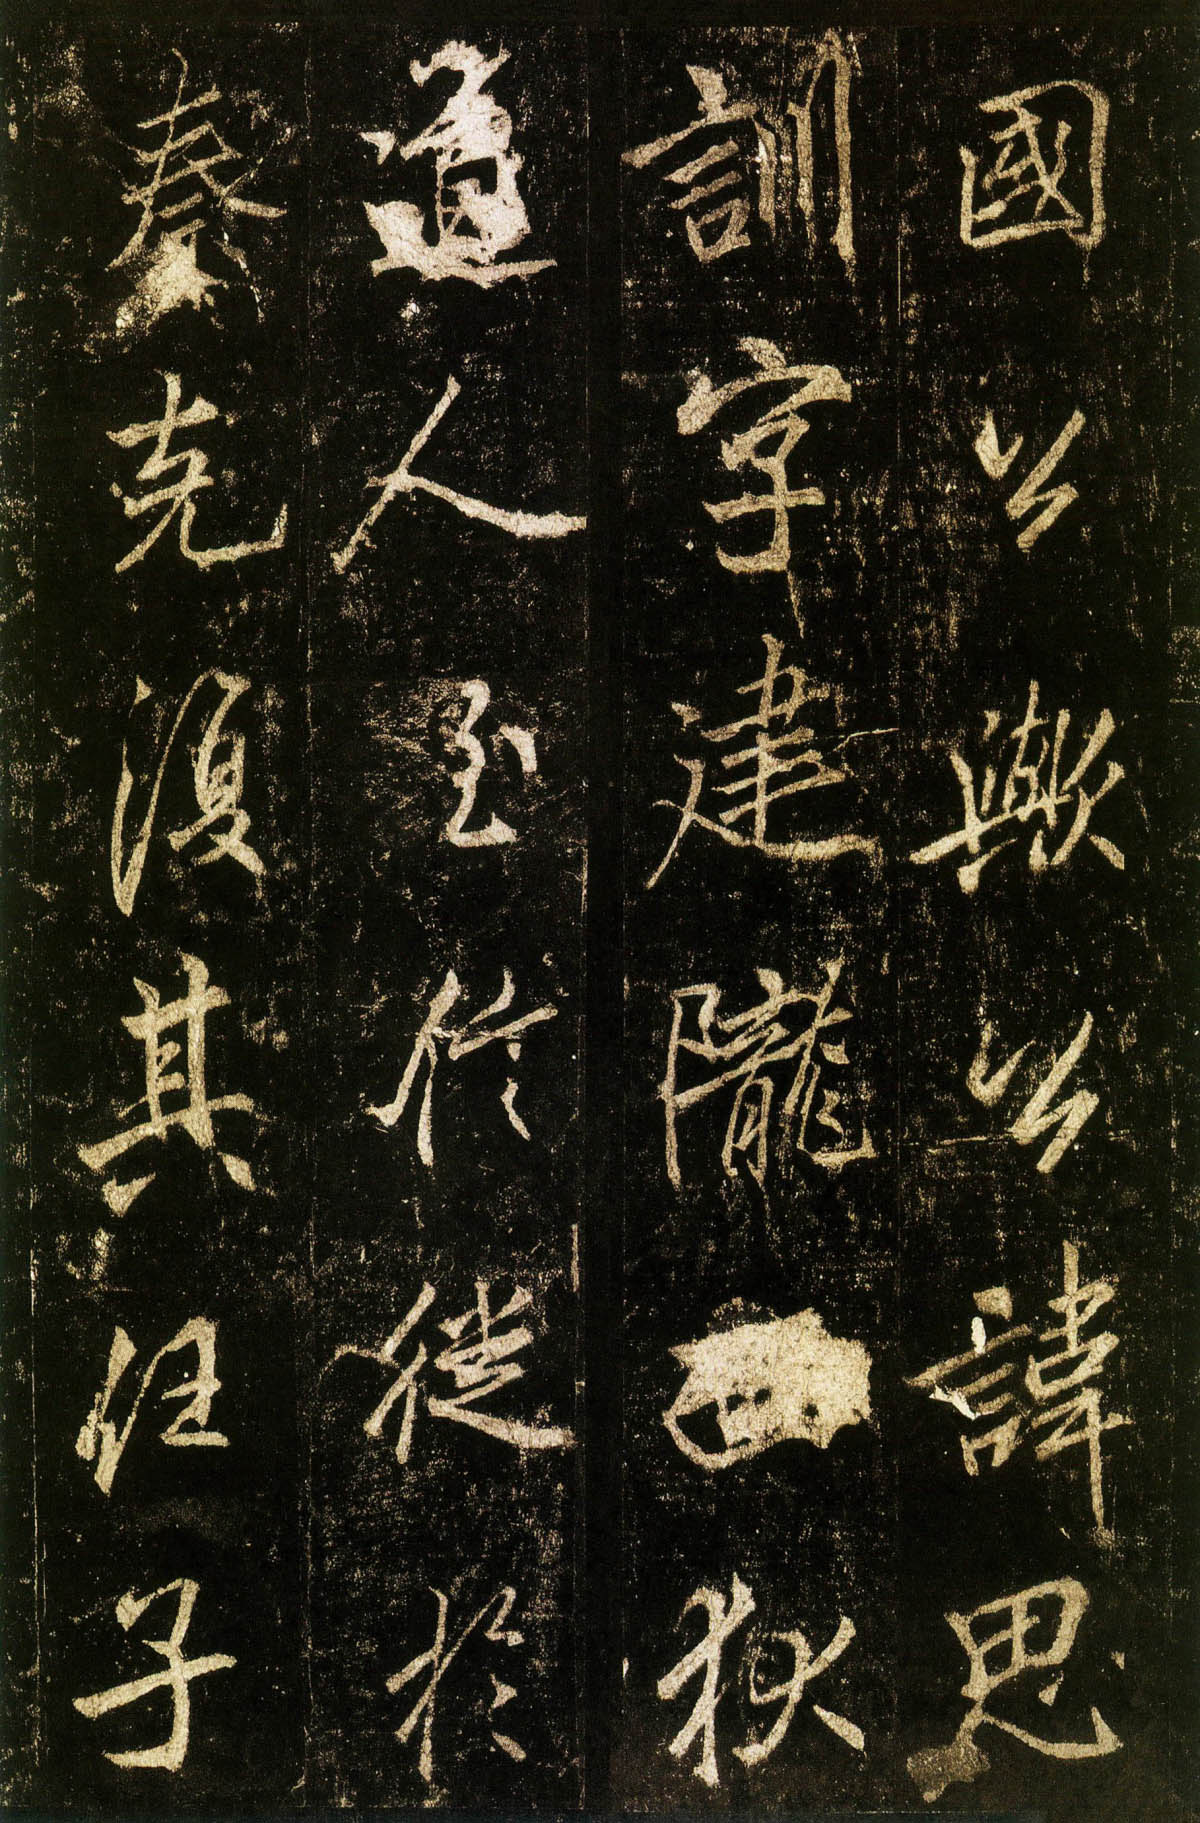 國公歟公諱思
訓字建隴西狄
道人至於徙於
秦克復其任子